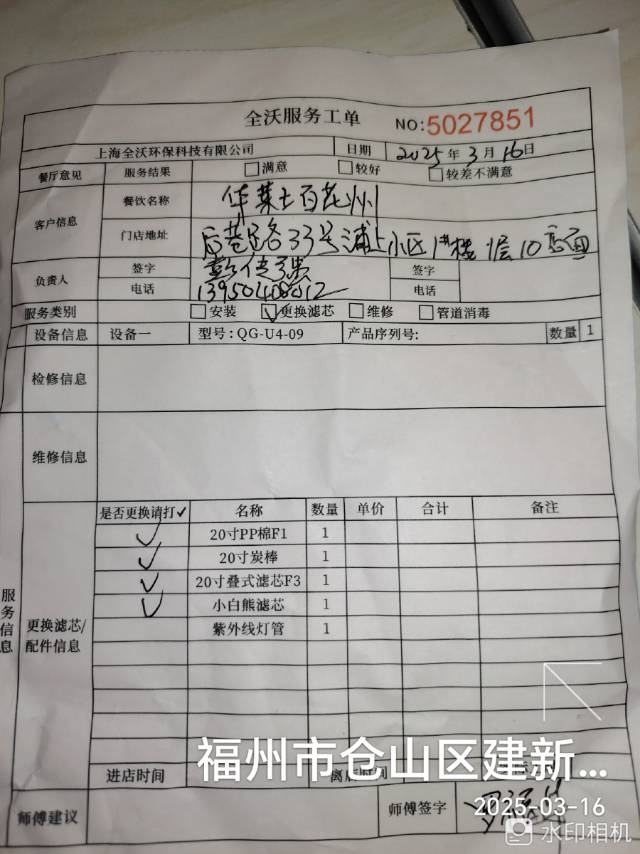 全沃服务工单 NO:5027851
上海全沃环保科技有限公司 日期 2025年3月16日
餐厅意见 服务结果 满意 较好 较差不满意
客户信息 餐饮名称 华莱士百花洲
门店地址 后巷路33号浦上小区1#楼1层10店面
负责人 签字 签字
电话 13950408012 电话
服务类别 安装 更换滤芯 维修 管道消毒
设备信息 设备一 型号:QG-U4-09 产品序列号: 数量 1
检修信息
维修信息
服务信息
更换滤芯/配件信息
是否更换请打✓ 名称 数量 单价 合计 备注
✓ 20寸PP棉F1 1
✓ 20寸炭棒 1
✓ 20寸叠式滤芯F3 1
✓ 小白熊滤芯 1
紫外线灯管 1
进店时间 离店时间
师傅建议 师傅签字
福州市仓山区建新...
2025-03-16
水印相机